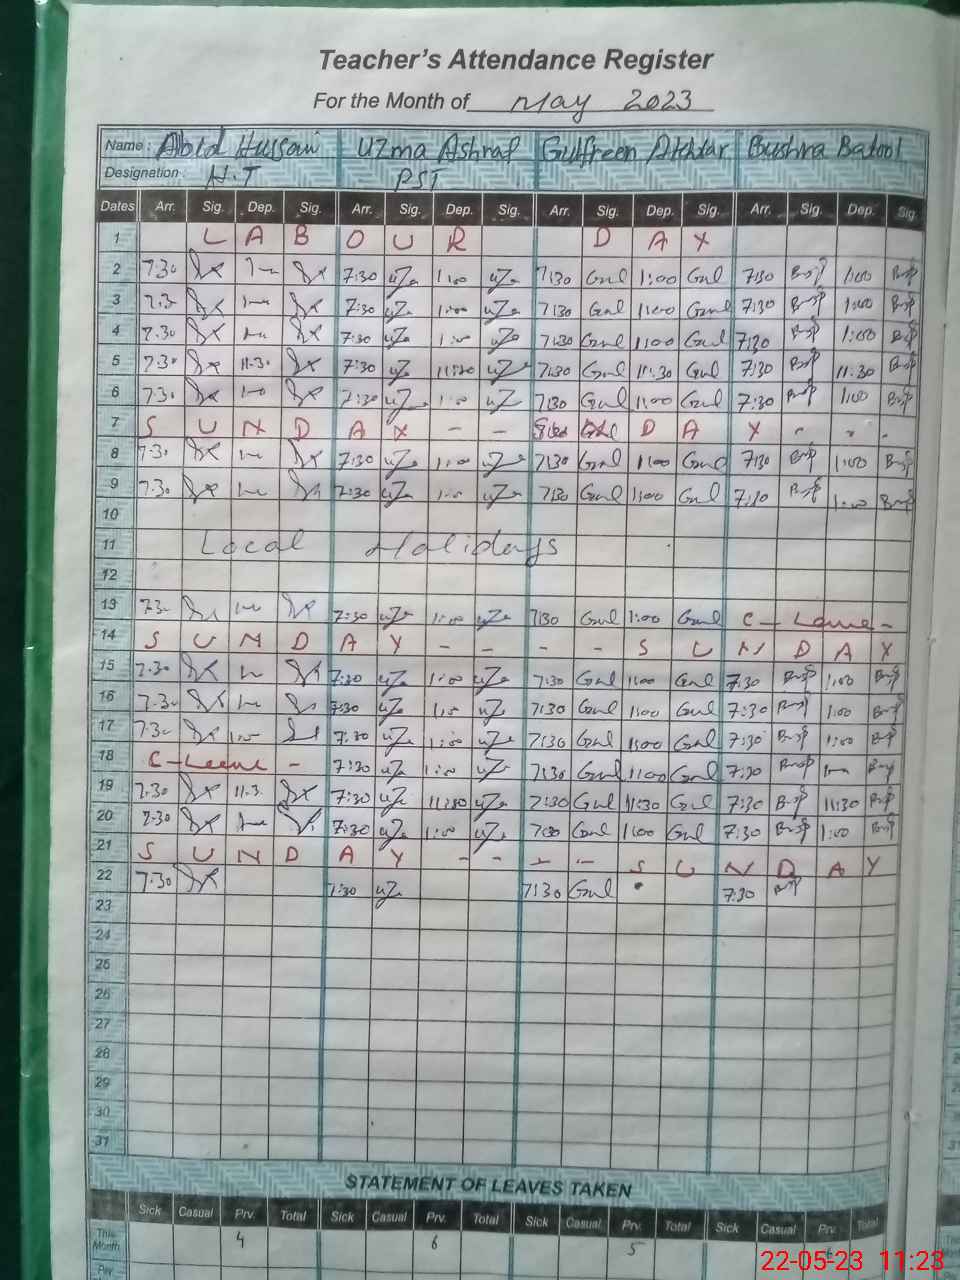 Teacher's Attendance Register
For the Month of May 2023
Name : Abid Hussain Uzma Ashraf Gulfreen Akhtar Bushra Batool
Designation : H.T PST
Dates Arr. Sig. Dep. Sig. Arr. Sig. Dep. Sig. Arr. Sig. Dep. Sig. Arr. Sig. Dep. Sig.
1 L A B O U R D A Y
2 7.30 7:30 uZ 1:00 uZ 7:30 Gul 1:00 Gul 7:30 1:00
3 7.3 7:30 uZ 1:00 uZ 7:30 Gul 1:00 Gul 7:30 1:00
4 7.30 7:30 uZ 1:00 uZ 7:30 Gul 1:00 Gul 7:30 1:00
5 7.30 11.30 7:30 uZ 11:30 uZ 7:30 Gul 11:30 Gul 7:30 11:30
6 7.30 1:00 7:30 uZ 1:00 uZ 7:30 Gul 1:00 Gul 7:30 1:00
7 S U N D A Y - - D A Y - - -
8 7.30 7:30 uZ 1:00 uZ 7:30 Gul 1:00 Gul 7:30 1:00
9 7.30 7:30 uZ 1:00 uZ 7:30 Gul 1:00 Gul 7:30 1:00
10
11 Local Holidays
12
13 7.30 7:30 uZ 1:00 uZ 7:30 Gul 1:00 Gul C - Leave -
14 S U N D A Y - - - - S U N D A Y
15 7.30 7:30 uZ 1:00 uZ 7:30 Gul 1:00 Gul 7:30 1:00
16 7.30 7:30 uZ 1:00 uZ 7:30 Gul 1:00 Gul 7:30 1:00
17 7.30 1:00 7:30 uZ 1:00 uZ 7:30 Gul 1:00 Gul 7:30 1:00
18 C - Leave - 7:30 uZ 1:00 uZ 7:30 Gul 1:00 Gul 7:30
19 7.30 11.3 7:30 uZ 11:30 uZ 7:30 Gul 11:30 Gul 7:30 11:30
20 7.30 7:30 uZ 1:00 uZ 7:30 Gul 1:00 Gul 7:30 1:00
21 S U N D A Y - - - - S U N D A Y
22 7.30 7:30 uZ 7:30 Gul 7:30
23
24
25
26
27
28
29
30
31
STATEMENT OF LEAVES TAKEN
Sick Casual Prv. Total Sick Casual Prv. Total Sick Casual Prv. Total Sick Casual Prv. Total
This Month 4 6 5
Prv.
22-05-23 11:23